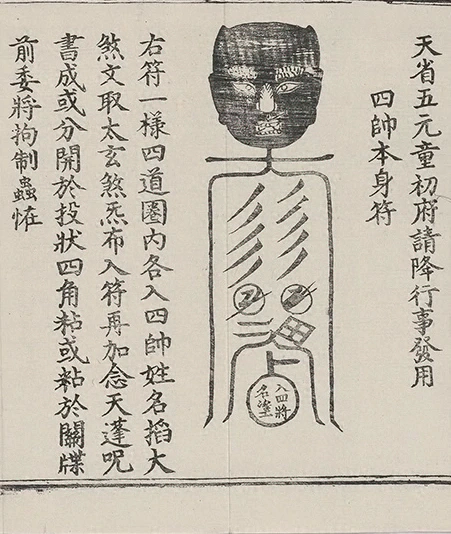 天省五元童初府請降行事發用
四帥本身符
入四將
名塗
右符一樣四道圈内各入四帥姓名搯大
煞文取太玄煞炁布入符再加念天蓬呪
書成或分開於投狀四角粘或粘於關牒
前委將拘制蟲恠